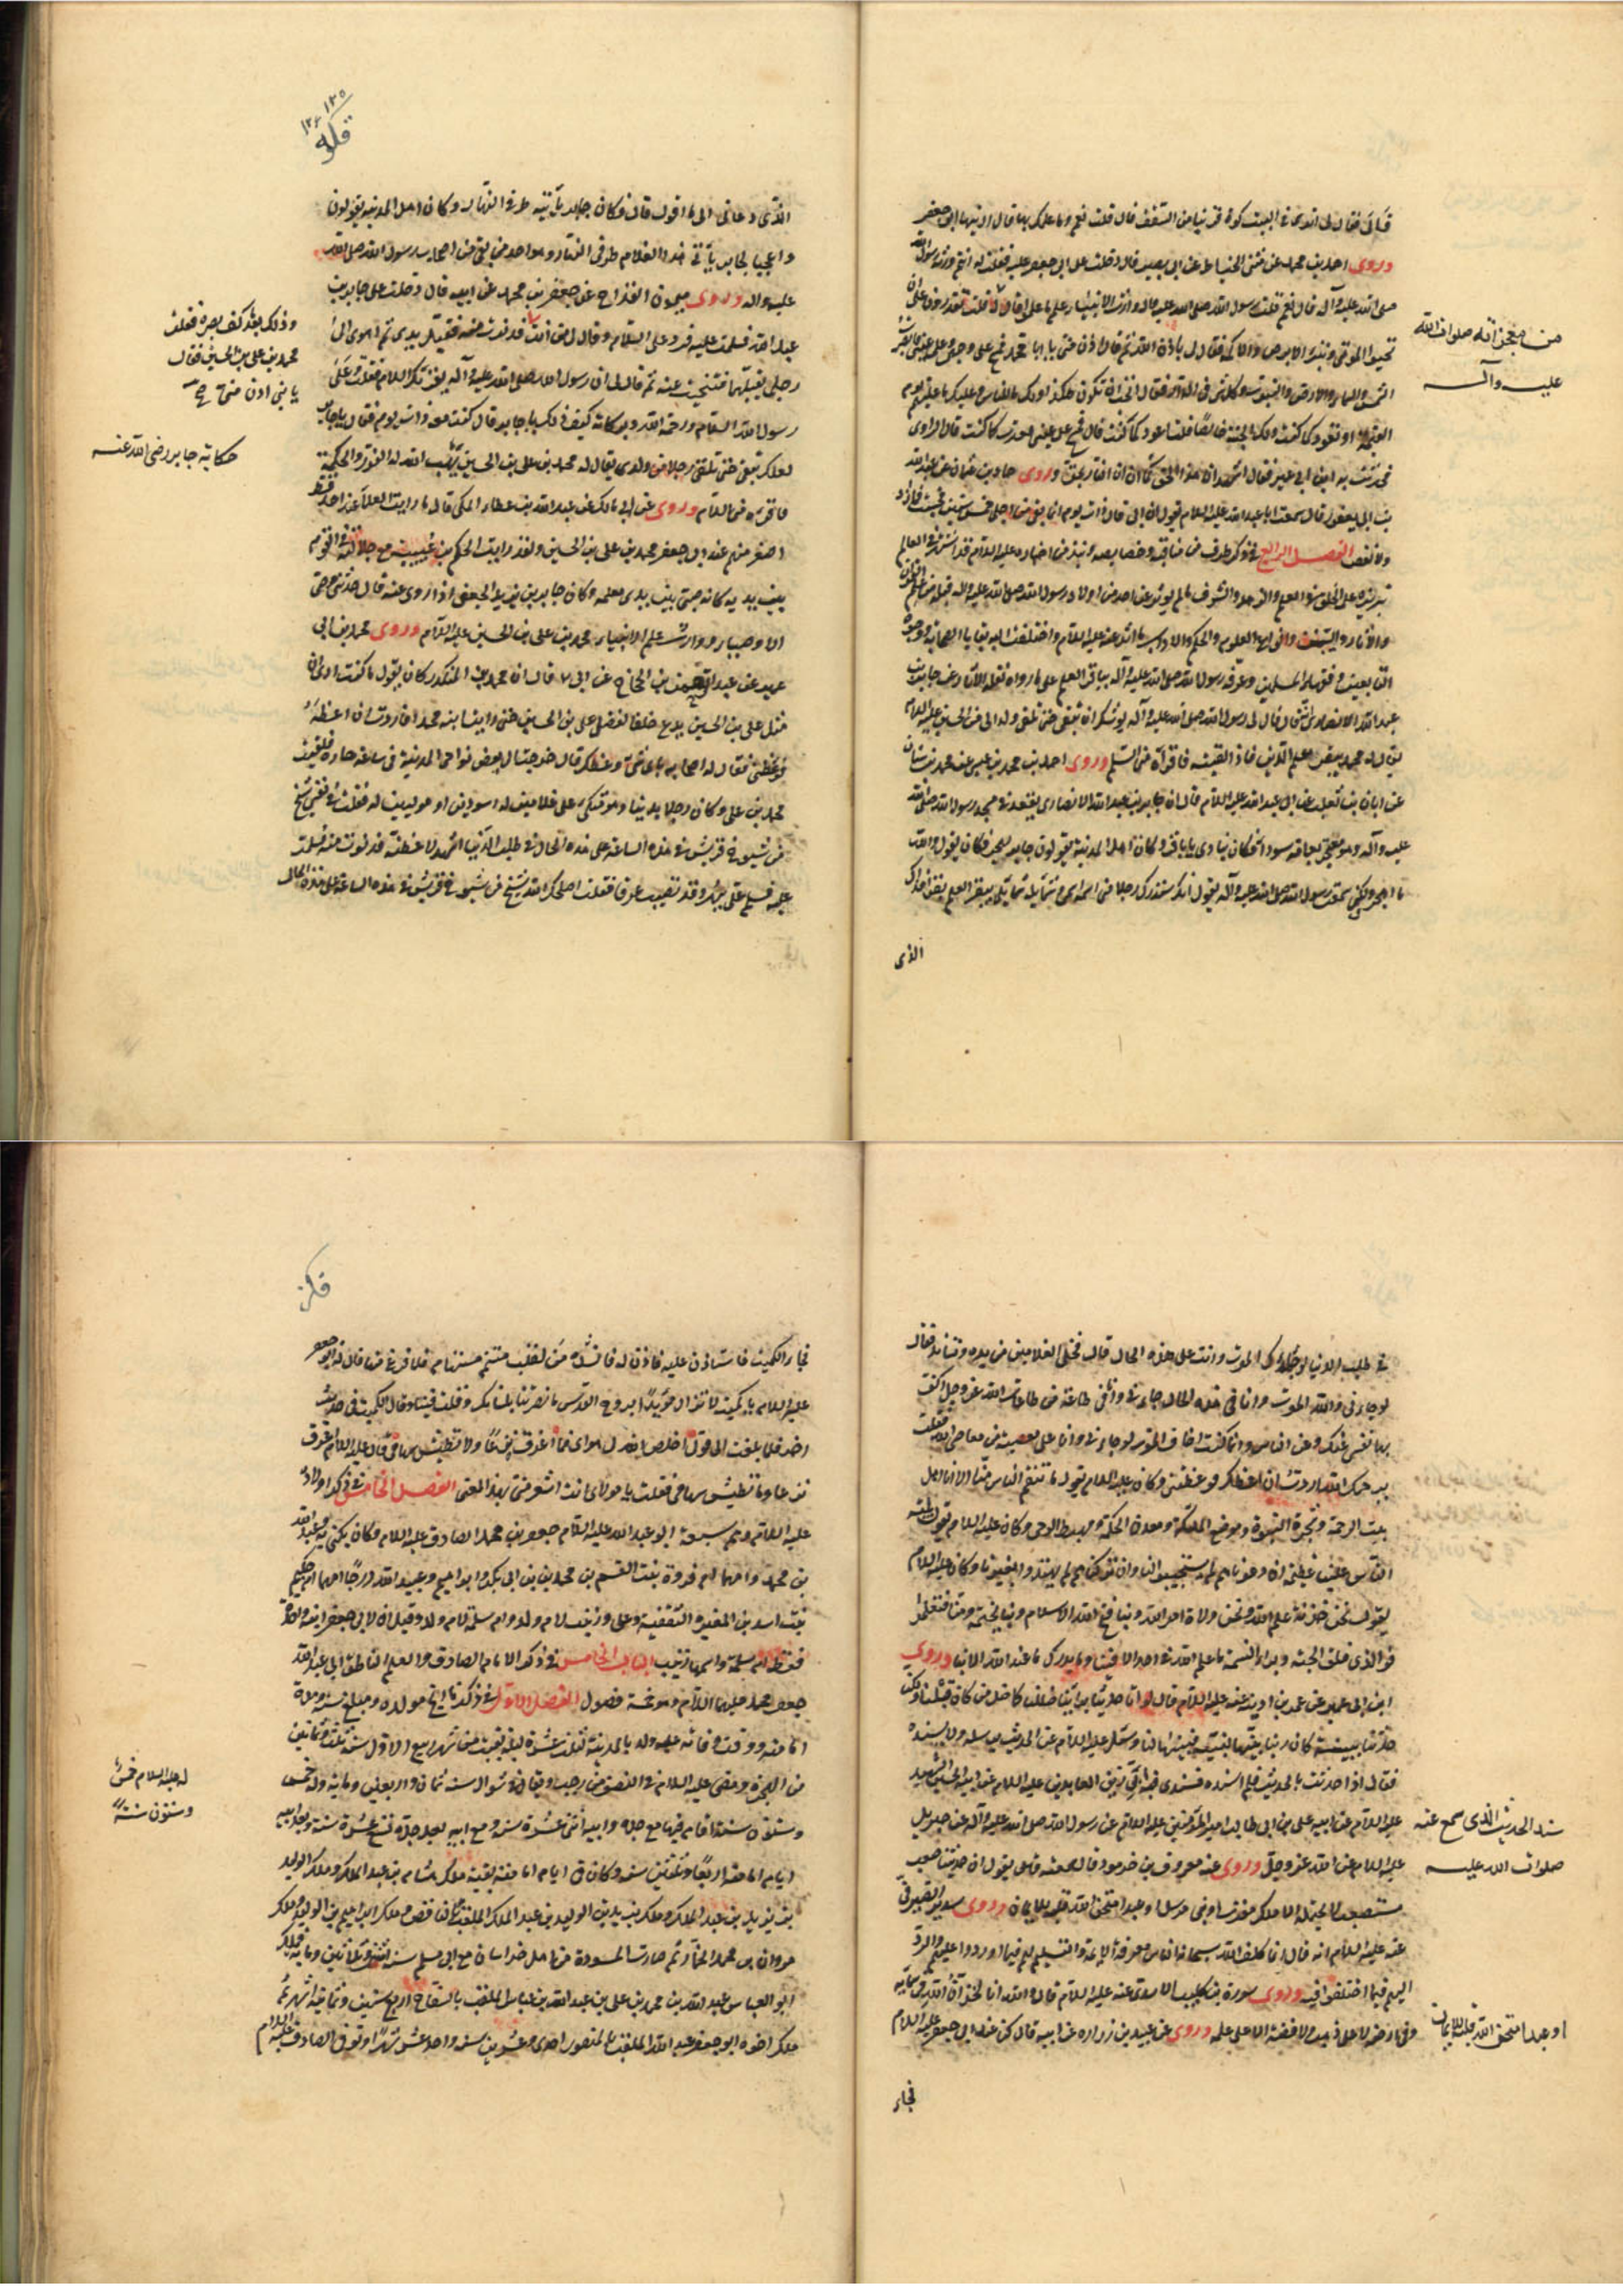 من معجزاته صلوات الله
عليه وآله
قال فقال لى اترى فى البيت كوة قريبا من السقف قال قلت نعم وما علمك بها قال ارنيها ابو جعفر
وروى احمد بن محمد عن مثنى الحناط عن ابى بصير قال دخلت على ابى جعفر عليه فقلت له انتم ورثة رسول الله
صلى الله عليه وآله قال نعم قلت رسول الله صلى الله عليه وآله وارث الانبياء علم ما علموا قال نعم قلت تقدرون على ان
تحيوا الموتى وتبرؤا الابرص والاكمه فقال لى باذن الله ثم قال ادن منى يا ابا محمد فمسح على وجهى وعلى عينى فابصرت
الشمس والسماء والارض والبيوت وكل شىء فى الدار فقال اتحب ان تكون هكذا ولك ما للناس وعليك ما عليهم يوم
القيمة او تعود كما كنت ولك الجنة خالصا قلت اعود كما كنت قال فمسح على عينى فعدت كما كنت قال الراوى
فحدثت به ابن ابى عمير فقال اشهد ان هذا الحق كما ان النهار حق وروى حماد بن عثمان عن عبد الله
بن ابى يعفور قال سمعت ابا عبد الله عليه السلام يقول ان ابى قال ذات يوم انما بقى من اجلى خمس سنين فحسبت فما زاد
ولا نقص الفصل الرابع فى ذكر طرف من مناقبه وخصايصه ونبذ من اخباره عليه السلام قد اشتهر فى العالم
تبرزه على الخلق فى العلم والزهد والشرف ما لم يؤثر عن احد من اولاد رسول الله صلى الله عليه وآله قبله من علم القرآن
والآثار والسنن وانواع العلوم والحكم والآداب ما اثر عنه عليه السلام واختلف اليه بقايا الصحابة ووجوه
التابعين وفقهاء المسلمين وعرفه رسول الله صلى الله عليه وآله بباقر العلم على ما رواه نقلة الآثار عن جابر بن
عبد الله الانصارى انه قال قال لى رسول الله صلى الله عليه وآله يوشك ان تبقى حتى تلقى ولدا لى من الحسين عليه السلام
يقال له محمد يبقر علم الدين فاذا لقيته فاقرأه منى السلم وروى احمد بن محمد بن عيسى عن محمد بن سنان
عن ابان بن تغلب عن ابى عبد الله عليه السلام قال ان جابر بن عبد الله الانصارى يقعد فى مسجد رسول الله صلى الله
عليه وآله وهو معتجر بعمامة سوداء فكان ينادى يا باقر وكان اهل المدينة يقولون جابر يهجر فكان يقول والله
ما اهجر ولكنى سمعت رسول الله صلى الله عليه وآله يقول انك ستدرك رجلا منى اسمه اسمى وشمايله شمايلى يبقر العلم بقرا فذاك
الذى
الذى دعانى الى ما اقول قال وكان جابر يأتيه طرفى النهار وكان اهل المدينة يقولون
واعجبا لجابر يأتى هذا الغلام طرفى النهار وهو احد من بقى من اصحاب رسول الله صلى الله
عليه وآله وروى ميمون القداح عن جعفر بن محمد عن ابيه قال دخلت على جابر بن
عبد الله فسلمت عليه فرد على السلام وقال لى من انت فدنوت منه فقبل يدى ثم اهوى الى
رجلى يقبلها فتنحيت عنه ثم قال لى ان رسول الله صلى الله عليه وآله يقرئك السلام فقلت وعلى
رسول الله السلام ورحمة الله وبركاته كيف ذلك يا جابر قال كنت معه ذات يوم فقال يا جابر
لعلك تبقى حتى تلقى رجلا من ولدى يقال له محمد بن على بن الحسين يهب الله له النور والحكمة
فاقرئه منى السلام وروى عن ابى مالك عن عبد الله بن عطاء المكى قال ما رايت العلماء عند احد قط
اصغر منهم عند ابى جعفر محمد بن على بن الحسين ولقد رايت الحكم بن عتيبة مع جلالته فى القوم
بين يديه كانه صبى بين يدى معلمه وكان جابر بن يزيد الجعفى اذا روى عنه قال حدثنى وصى
الاوصياء ووارث علم الانبياء محمد بن على بن الحسين عليه السلام وروى محمد بن ابى
عمير عن عبد الرحمن بن الحجاج عن ابى ع قال ان محمد بن المنكدر كان يقول ما كنت ارى ان
مثل على بن الحسين يدع خلفا لفضل على بن الحسين حتى رايت ابنه محمدا فاردت ان اعظه
فوعظنى فقال له اصحابه باى شىء وعظك قال خرجت الى بعض نواحى المدينة فى ساعة حارة فلقيت
محمد بن على وكان رجلا بدينا وهو متكىء على غلامين له اسودين او موليين له فقلت فى نفسى شيخ
من شيوخ قريش فى هذه الساعة على هذه الحال فى طلب الدنيا اشهد لاعظنه فدنوت منه فسلمت
عليه فسلم على ببهر وقد تصبب عرقا فقلت اصلحك الله شيخ من شيوخ قريش فى هذه الساعة على هذه الحال
وذلك بعد كف بصره فقلت
محمد بن على بن الحسين فقال
يا بنى ادن منى صح
حكاية جابر رضى الله عنه
فى طلب الدنيا لو جاءك الموت وانت على هذه الحال قال فخلى الغلامين من يده وتساند فقال
لو جاءنى والله الموت وانا فى هذه الحال جاءنى وانا فى طاعة من طاعات الله عز وجل اكف
بها نفسى عنك وعن الناس وانما كنت اخاف الموت لو جاءنى وانا على معصية من معاصى الله فقلت
يرحمك الله اردت ان اعظك فوعظتنى وكان عليه السلام يقول ما تنقم الناس منا الا انا اهل
بيت الرحمة وشجرة النبوة وموضع الملائكة ومعدن الحكمة ومهبط الوحى وكان عليه السلام يقول بلية
الناس علينا عظيمة ان دعوناهم لم يستجيبوا لنا وان تركناهم لم يهتدوا بغيرنا وكان عليه السلام
يقول نحن خزنة علم الله ونحن ولاة امر الله وبنا فتح الله الاسلام وبنا يختمه ومنا فتعلموا
فو الذى فلق الحبة وبرأ النسمة ما علم الله فى احد الا فينا وما يدرك ما عند الله الا بنا وروى
ابن ابى عمير عن عمر بن اذينة عنه عليه السلام قال لو انا حدثنا براينا ضللنا كما ضل من كان قبلنا ولكنا
حدثنا ببينة كان ربنا بينها لنبيه فبينها لنا وسئل عليه السلام عن الحديث يرسله ولا يسنده
فقال اذا حدثت بالحديث فلم اسنده فسندى فيه ابى زين العابدين عليه السلام عن ابيه الحسين الشهيد
عليه السلام عن ابيه على بن ابى طالب امير المؤمنين عليه السلام عن رسول الله صلى الله عليه وآله عن جبرئيل
عليه السلام عن الله عز وجل وروى عنه معروف بن خربوذ قال سمعته عليه يقول ان حديثنا صعب
مستصعب لا يحتمله الا ملك مقرب او نبى مرسل او عبد امتحن الله قلبه للايمان وروى سدير الصيرفى
عنه عليه السلام انه قال انما كلف الله سبحانه الناس معرفة الائمة والتسليم لهم فيما اوردوا عليهم والرد
اليهم فيما اختلفوا فيه وروى سورة بن كليب الاسدى عنه عليه السلام قال والله انا لخزان الله فى سمايه
وفى ارضه لا على ذهب ولا فضة الا على علمه وروى عن عبيد بن زرارة عن ابيه قال كنت عند ابى جعفر عليه السلام
سند الحديث الذى سمع عنه
صلوات الله عليه
او عبد امتحن الله قلبه للايمان
فجاء
فجاء الكميت فاستاذن عليه فاذن له فانشده من لقلب متيم مستهام فلما فرغ منها قال له ابو جعفر
عليه السلام يا كميت لا تزال مؤيدا بروح القدس ما نصرتنا بلسانك وقلت فينا وقال الكميت فى حديث
اخر فلما بلغت الى قولى اخلص الله لى هواى فما اغرق نزعا ولا تطيش سهامى قال عليه السلام فما اغرق
نزعا وما تطيش سهامى فقلت يا مولاى انت اشعر منى بهذا المعنى الفصل الخامس فى ذكر اولاده
عليه السلام وهم سبعة ابو عبد الله عليه السلام جعفر بن محمد الصادق عليه السلام وكان يكنى به وعبد الله
بن محمد وامهما ام فروة بنت القسم بن محمد بن ابى بكر وابراهيم وعبيد الله درجا امهما ام حكيم
بنت اسد بن المغيرة الثقفية وعلى وزينب لام ولد وام سلمة لام ولد وقيل ان لابى جعفر ابنة واحدة
فقط ام سلمة واسمها زينب الباب الخامس فى ذكر الامام الصادق والعلم الناطق ابى عبد الله
جعفر بن محمد عليهما السلام وهو خمسة فصول الفصل الاول فى ذكر تاريخ مولده ومبلغ سنه ومدة
امامته ووقت وفاته عليه ولد بالمدينة لثلث عشرة ليلة بقيت من شهر ربيع الاول سنة ثلث وثمانين
من الهجرة ومضى عليه السلام فى النصف من رجب ويقال فى شوال سنة ثمان واربعين ومائة وله خمس
وستون سنة اقام فيها مع جده وابيه اثنتى عشرة سنة ومع ابيه بعد جده تسع عشرة سنة وبعد ابيه
ايام امامته اربعا وثلثين سنة وكان فى ايام امامته بقية ملك هشام بن عبد الملك وملك الوليد
بن يزيد بن عبد الملك وملك يزيد بن الوليد بن عبد الملك الملقب بالناقص وملك ابراهيم بن الوليد وملك
مروان بن محمد الحمار ثم صارت المسودة من اهل خراسان مع ابى مسلم سنة اثنتين وثلاثين ومائة فملك
ابو العباس عبد الله بن محمد بن على بن عبد الله بن عباس الملقب بالسفاح اربع سنين وثمانية اشهر ثم
ملك اخوه ابو جعفر عبد الله الملقب بالمنصور احدى وعشرين سنة واحد عشر شهرا وتوفى الصادق عليه السلام
له عليه السلام خمس
وستون سنة